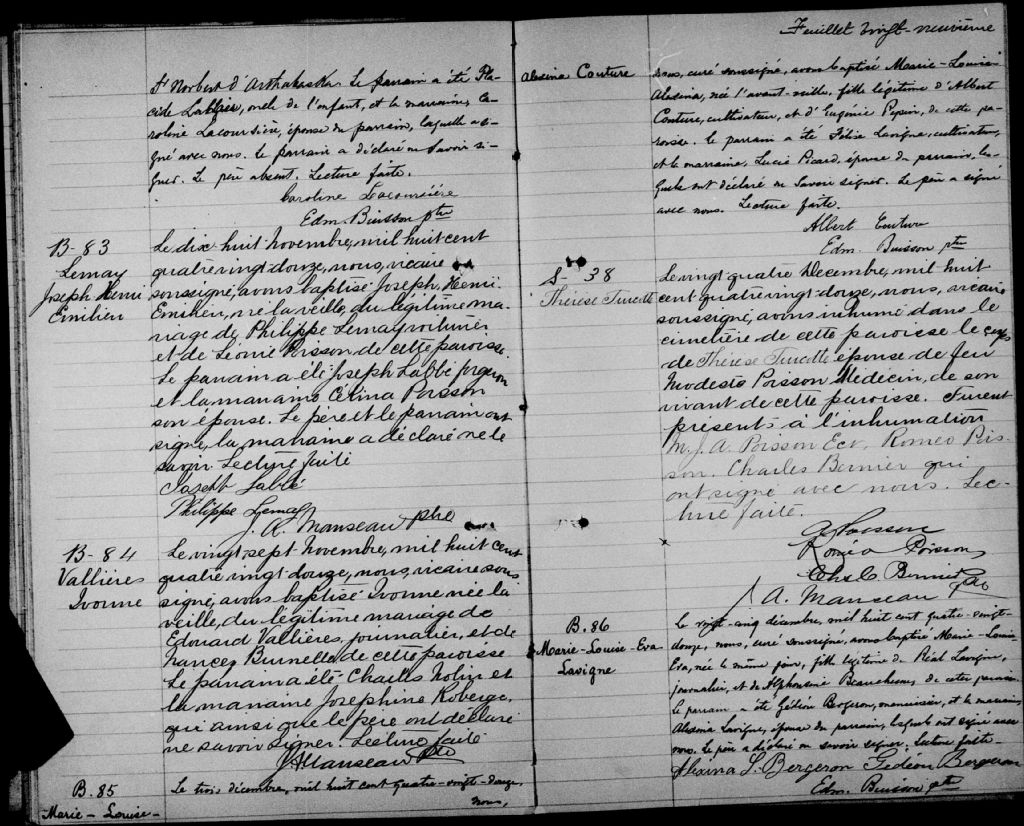 St Norbert d'Arthabaska. Le parrain a été Pla-
cide Lablaie, oncle de l'enfant, et la marraine, Ca-
roline Lacoursière, épouse du parrain, laquelle a si-
gné avec nous. Le parrain a déclaré ne savoir si-
gner. Le père absent. Lecture faite.
Caroline Lacourcière
Edm. Buisson ptre
B-83
Lemay
Joseph Henri
Emilien
Le dix huit Novembre, mil huit cent
quatre vingt douze, nous, vicaire
soussigné, avons baptisé Joseph, Henri
Emilien, né la veille, du légitime ma-
riage de Philippe Lemay voiturier
et de Léonie Poisson de cette paroisse.
Le parrain a été Joseph Labbé forgeron
et la marraine Célina Poisson
son épouse. Le père et le parrain ont
signé, la marraine a déclaré ne le
savoir Lecture faite
Joseph Labbé
Philippe Lemay
J. A. Manseau ptre
B-84
Vallières
Ivonne
Le vingt sept Novembre, mil huit cent
quatre vingt douze, nous, vicaire sous
signé, avons baptisé Ivonne née la
veille, du légitime mariage de
Edouard Vallières, journalier, et de
Brunelle de cette paroisse
Le parrain a été Charles Nolin et
la marraine Josephine Roberge,
qui ainsi que le père ont déclaré
ne savoir signer. Lecture faite
JAManseau Ptre
B.85
Marie-Louise-
Le trois décembre, mil huit cent quatre-vingt-douze,
nous,
Feuillet vingt-neuvième
Alexina Couture
nous, curé soussigné, avons baptisé Marie-Louise
Alexina, née l'avant-veille, fille légitime d'Albert
Couture, cultivateur, et d'Eugénie Pepin, de cette pa-
roisse. Le parrain a été Félix Lavigne, cultivateur,
et la marraine, Lucie Picard, épouse du parrain, les-
quels ont déclaré ne savoir signer. Le père a signé
avec nous. Lecture faite.
Albert Couture
Edm. Buisson ptre
S-38
Thérèse Turcotte
Le vingt quatre Decembre, mil huit
cent quatre vingt douze, nous, vicaire
soussigné, avons inhumé dans le
cimetière de cette paroisse le corps
de Thérèse Turcotte épouse de feu
Modeste Poisson Médecin, de son
vivant de cette paroisse. Furent
présents à l'inhumation
M. J. A. Poisson Ecr, Roméo Pois-
son. Charles Bernier qui
ont signé avec nous. Lec-
ture faite.
Poisson
Roméo Poisson
Chs C. Bernier
J A. Manseau Ptre
B.86
Marie-Louise-Eva
Lavigne
Le vingt-cinq décembre, mil huit cent quatre-vingt-
douze, nous, curé soussigné, avons baptisé Marie-Louise
Eva, née le même jour, fille légitime de Réal Lavigne,
journalier, et de Alphonsine Beauchesne, de cette paroisse.
Le parrain a été Gédéon Bergeron, menuisier, et la marraine,
Alexina Lavigne, épouse du parrain, lesquels ont signé avec
nous. Le père a déclaré ne savoir signer. Lecture faite-
Alexina L. Bergeron Gedéon Bergeron
Edm. Buisson ptre